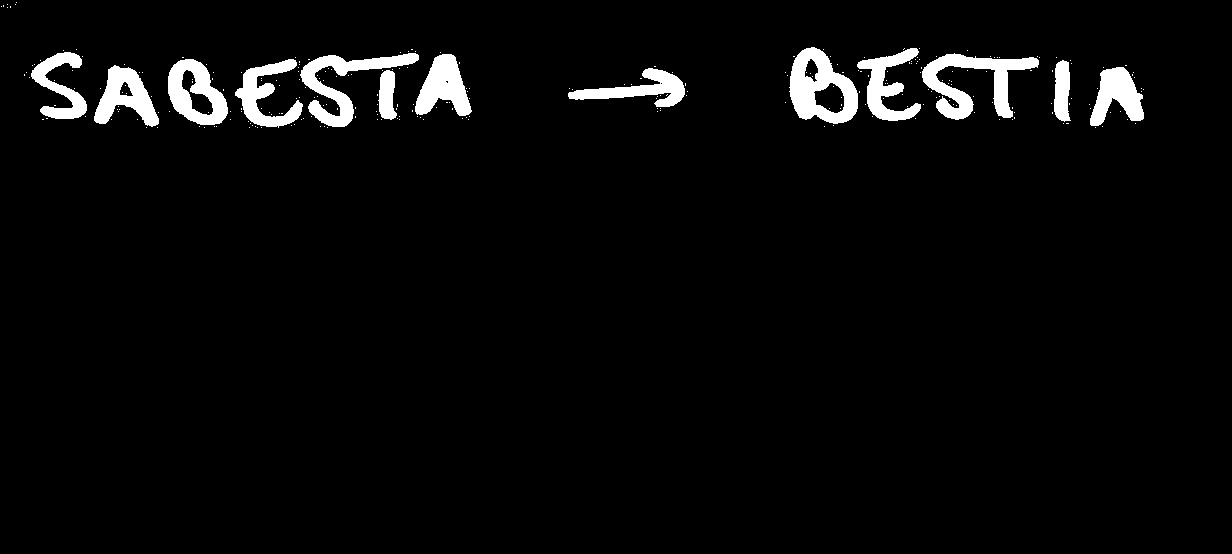 SABESTA → BESTIA